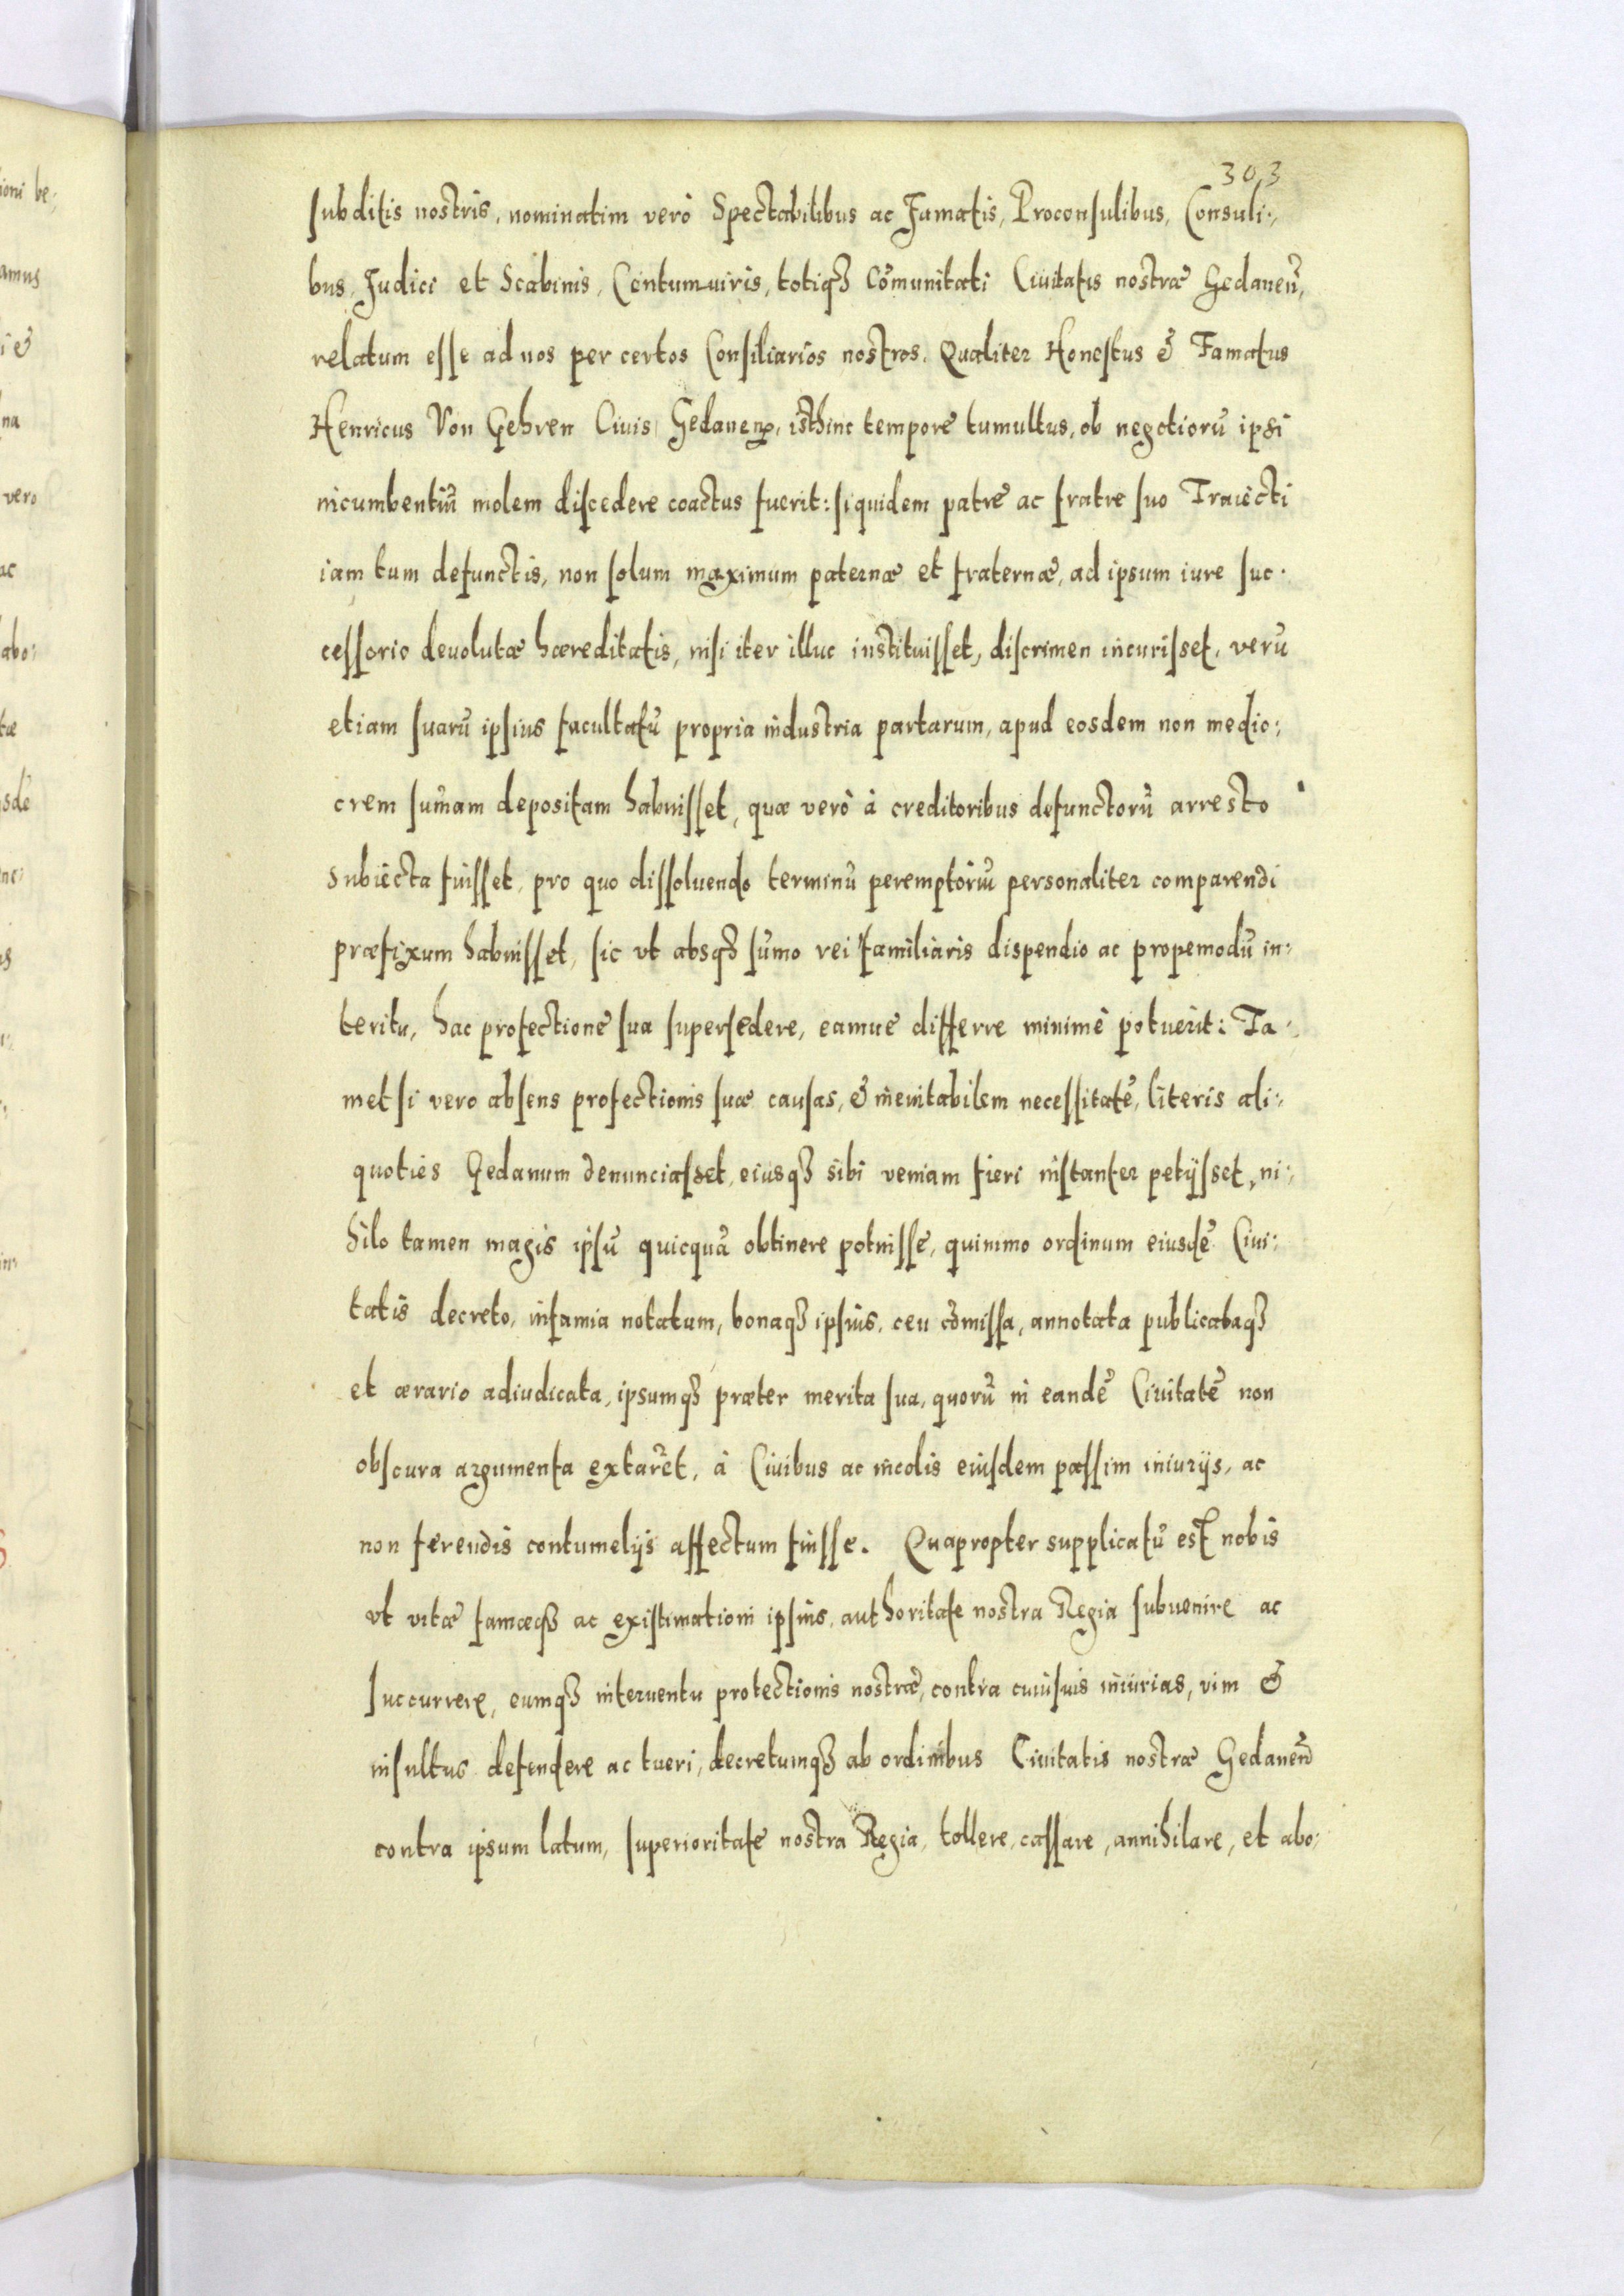 303
subditis nostris, nominatim verò Spectabilibus ac Famatis, Proconsulibus, Consuli:,
bus, Judici et Scabinis, Centumuiris, totiqꝫ Cōmunitati Ciuitatis nostræ Gedaneñ,
relatum esse ad nos per certos Consiliarios nostros. Qualiter Honestus & Famatus
Henricus Von Gehren Ciuis Gedaneñ, isthinc tempore tumultus, ob negotiorū ipsi
incumbentiū molem discedere coactus fuerit: siquidem patre ac fratre suo Traiecti
iam tum defunctis, non solum maximum paternæ et fraternæ, ad ipsum iure suc.
cessorio deuolutæ hæreditatis, nisi iter illuc instituisset, discrimen incurisset, verū
etiam suarū ipsius facultatū propria industria partarum, apud eosdem non medio:
crem sum̄am depositam habuisset, quæ verò à creditoribus defunctorū arresto
subiecta fuisset, pro quo dissoluendo terminū peremptoriū personaliter comparendi
præfixum habuisset, sic vt absqꝫ sum̄o rei familiaris dispendio ac propemodū in:
teritu, hac profectione sua supersedere, eamue differre minimè potuerit: Ta:
metsi vero absens profectionis suæ causas, & ineuitabilem necessitatē, literis ali:
quoties Gedanum denunciasset, eiusqꝫ sibi veniam fieri instanter petijsset, ni:
hilo tamen magis ipsū quicquā obtinere potuisse, quinimo ordinum eiusdē Ciui:
tatis decreto, infamia notatum, bonaqꝫ ipsius, ceu cōmissa, annotata publicataqꝫ
et ærario adiudicata, ipsumqꝫ præter merita sua, quorū in eandē Ciuitatē non
obscura argumenta extarēt, à Ciuibus ac incolis eiusdem passim iniurijs, ac
non ferendis contumelijs affectum fuisse. Quapropter supplicatū est nobis
vt vitæ famæqꝫ ac existimationi ipsius, authoritate nostra Regia subuenire ac
succurrere, eumqꝫ interuentu protectionis nostræ, contra cuiusuis iniurias, vim &
insultus defendere ac tueri, decretumqꝫ ab ordinibus Ciuitatis nostræ Gedaneñ
contra ipsum latum, superioritate nostra Regia, tollere, cassare, annihilare, et abo:
ioni be:
amus
i &
na
vero
ac
abo:
tæ